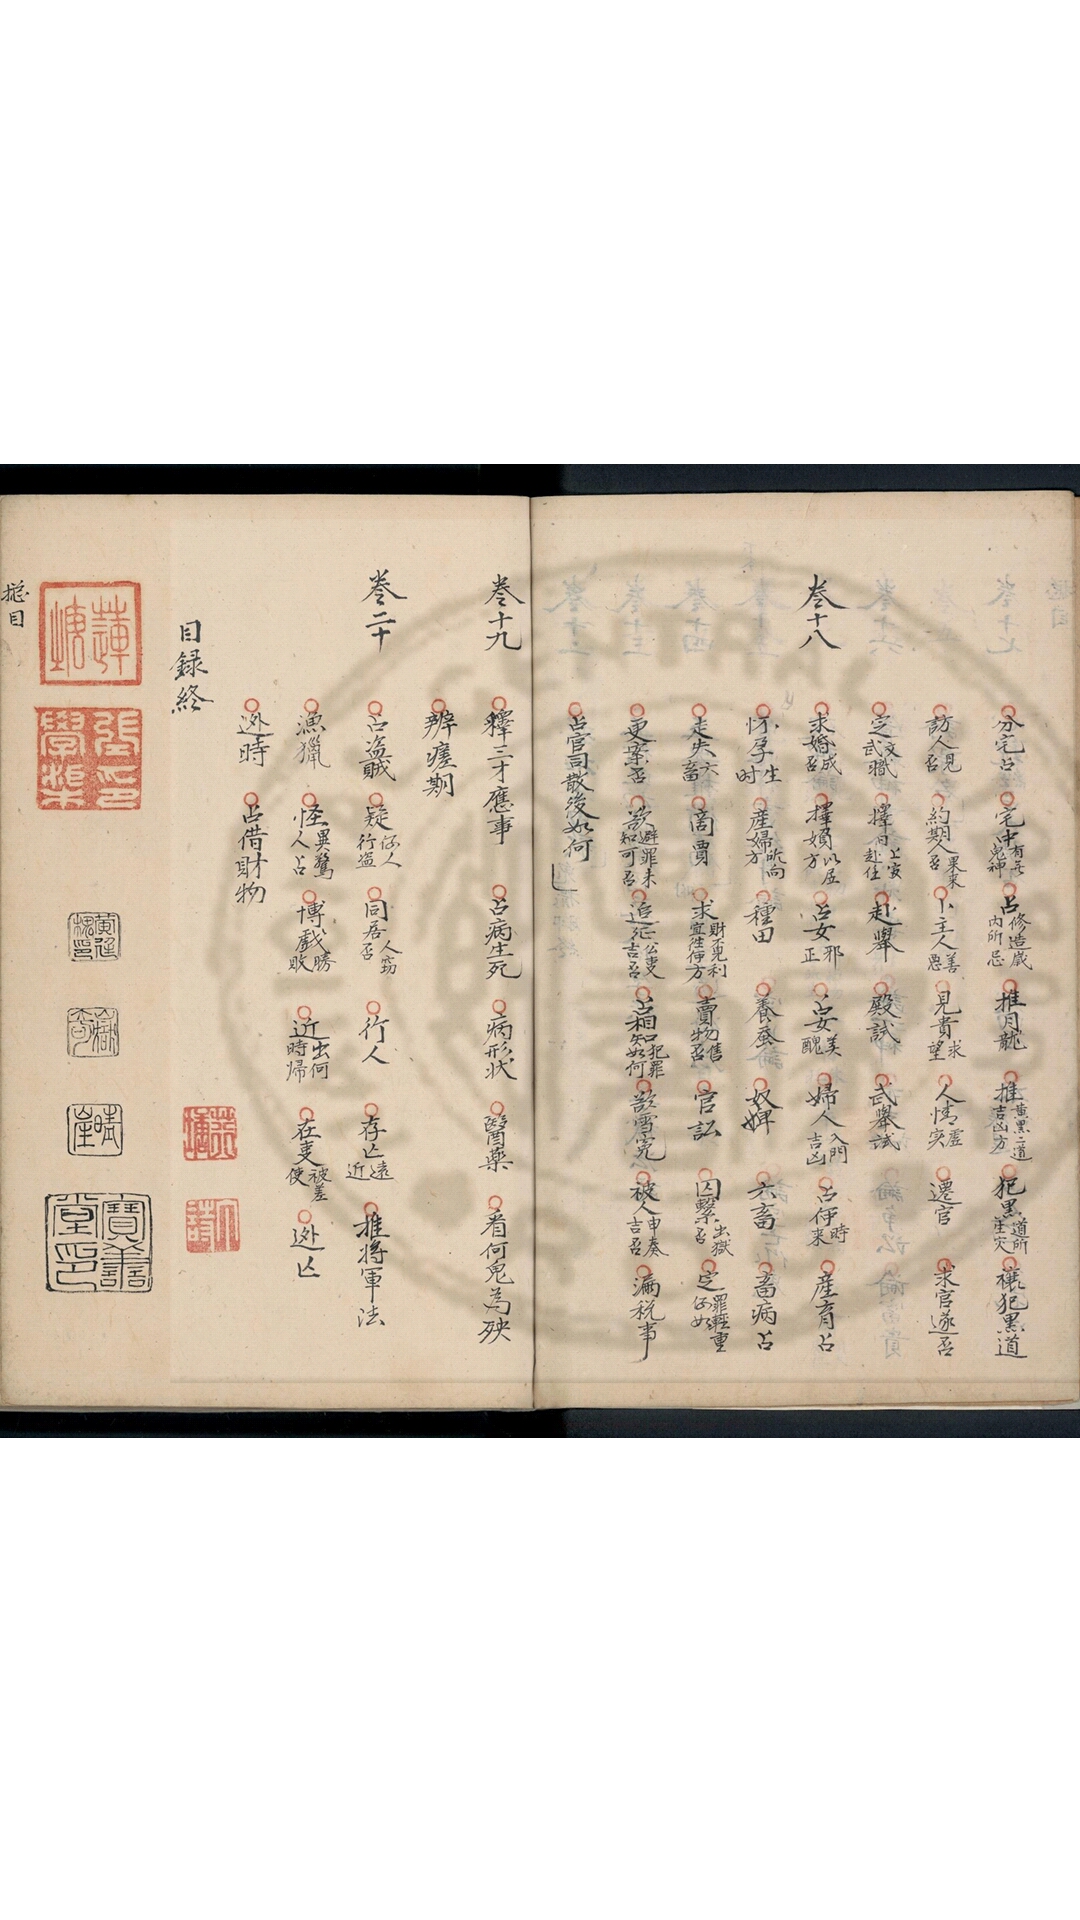 分宅占 宅中有無鬼神 占修造戯內所忌 推月龍 推黃黑二道吉凶方 犯黑道所主灾 禳犯黒道
訪人見否 約期人果來否 卜主人善惡 見貴求望 人情虛实 遷官 求官遂否
定文武職 擇向上寅赴任 赴舉 殿試 武舉試
卷十八 求婚成否 擇婚以居方 占女邪正 占女美醜 婦人入門吉凶 占何時来 産育占
怀孕生时 産婦所向方 種田 養蚕 奴婢 六畜 畜病占
走失六畜 啇賈 求財不見利宜往何方 賣物售否 官訟 囚繫出獄否 定罪輕重何如
更案否 欲避罪未知可否 追延公吏吉否 占相知犯罪如何 欲雪寃 被人申奏吉否 漏稅事
占官司散後如何
卷十九 釋三才應事 占病生死 病形状 醫藥 看何鬼為殃
辨瘥期
卷二十 占盜賊 疑何人行盗 同居人窃否 行人 存亾遠近 推將軍法
漁獵 怪異驚人占 博戲勝敗 近出何時歸 在吏被差使 逃亾
逃時 占借財物
目録終
總目
蓮塘
寶善堂印